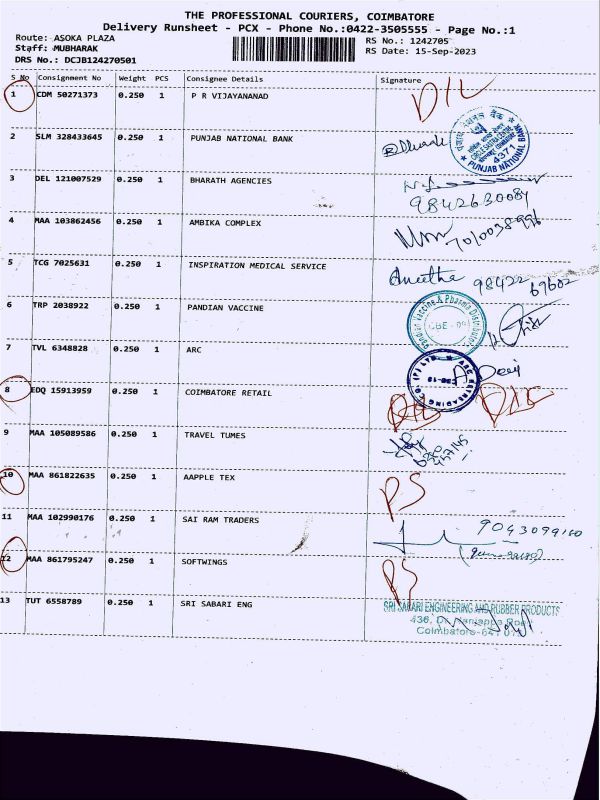 THE PROFESSIONAL COURIERS, COIMBATORE
Delivery Runsheet - PCX - Phone No.:0422-3505555 - Page No.:1
Route: ASOKA PLAZA RS No.: 1242705
Staff: MUBHARAK RS Date: 15-Sep-2023
DRS No.: DCJB124270501
S No Consignment No Weight PCS Consignee Details Signature
1 CDM 50271373 0.250 1 P R VIJAYANANAD
2 SLM 328433645 0.250 1 PUNJAB NATIONAL BANK 4371 PUNJAB NATIONAL BANK
3 DEL 121007529 0.250 1 BHARATH AGENCIES
9842630084
4 MAA 103862456 0.250 1 AMBIKA COMPLEX
5 TCG 7025631 0.250 1 INSPIRATION MEDICAL SERVICE 98422 69602
6 TRP 2038922 0.250 1 PANDIAN VACCINE
7 TVL 6348828 0.250 1 ARC
8 EDQ 15913959 0.250 1 COIMBATORE RETAIL
9 MAA 105089586 0.250 1 TRAVEL TUMES
10 MAA 861822635 0.250 1 AAPPLE TEX PS
11 MAA 102990176 0.250 1 SAI RAM TRADERS
12 MAA 861795247 0.250 1 SOFTWINGS PS
13 TUT 6558789 0.250 1 SRI SABARI ENG
SRI SABARI ENGINEERING AND RUBBER PRODUCTS